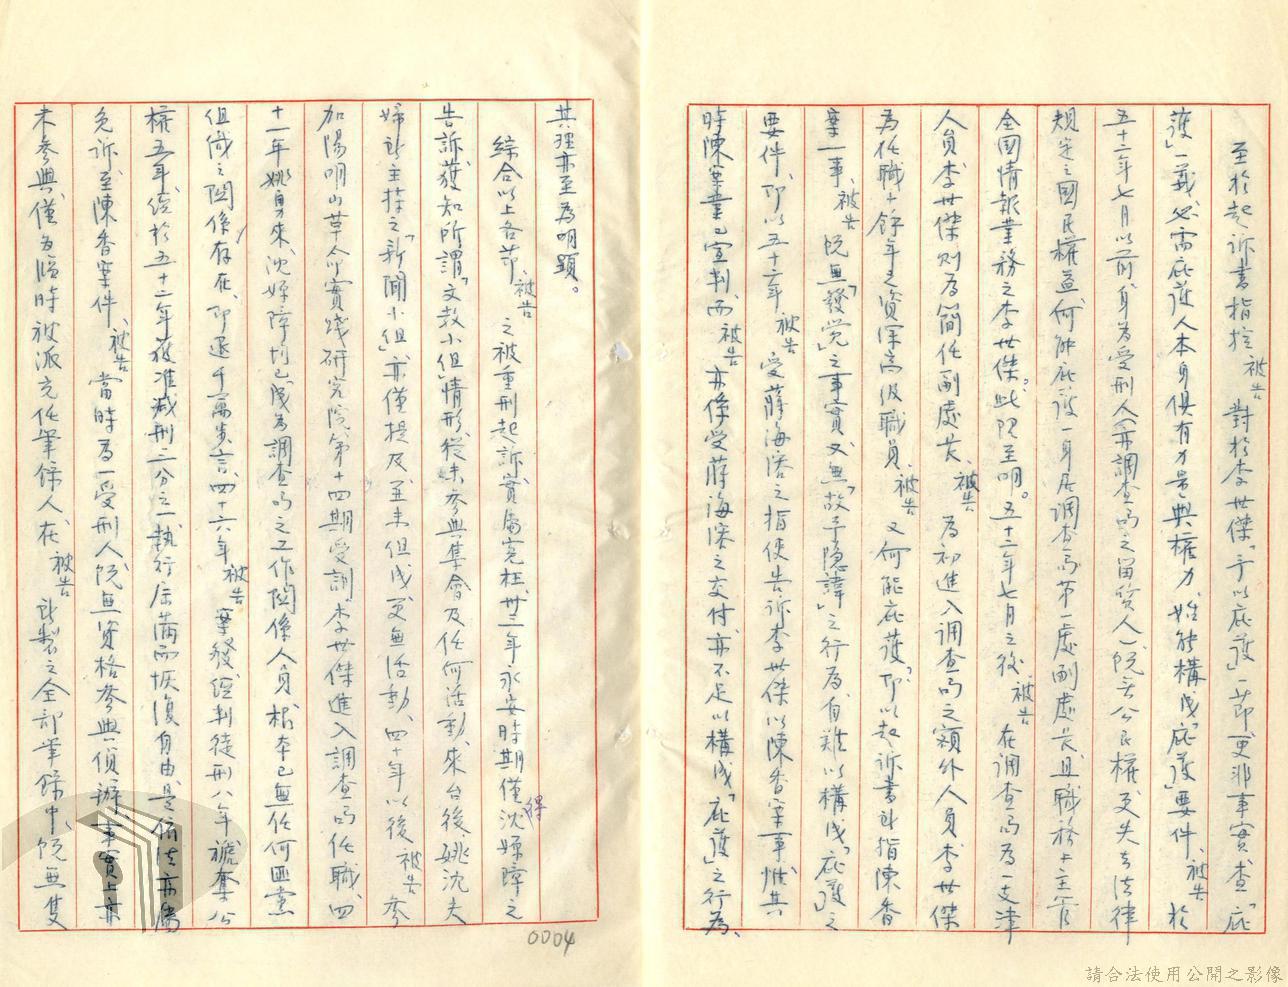 至於起訴書指控被告對於李世傑「予以庇護」一節更非事實查「庇
護」一義必需庇護人本身俱有力量與權力、始能構成「庇護」要件、被告於
五十二年七月以前身為受刑人(亦調查局之留質人)既無公民權更失去法律
規定之國民權益何能庇護一身居調查局第一處副處長且職務上主管
全國情報業務之李世傑。此理至明。五十二年七月之後、被告在調查局為一支津
人員李世傑則為簡任副處長、被告為初進入調查局之額外人員李世傑
為任職十餘年之資深高級職員、被告又何能庇護?即以起訴書所指陳香
案一事、被告既無「發覺」之事實又無「故予隱諱」之行為自難以構成「庇護」之
要件、即以五十六年被告受蔣海溶之指使告訴李世傑以陳香案事惟其
時陳案業已宣判、而被告亦係受蔣海溶之交付亦不足以構成「庇護」之行為、
其理亦至為明顯。
綜合以上各節、被告之被重刑起訴實屬冤枉、卅三年永安時期僅得沈嫄璋之
告訴獲知所謂「文教小組」情形從未參與集會及任何活動、來台後、姚沈夫
婦所主持之「新聞小組」亦僅提及、並未但成更無活動、四十年以後被告參
加陽明山革命實踐研究院第十四期受訓李世傑進入調查局任職、四
十一年姚勇來、沈嫄璋均已成為調查局之工作關係人員根本已無任何匪黨
但織之關係存在、即退千萬步言、四十六年被告案發經判徒刑八年褫奪公
權五年經於五十二年獲准減刑三分之一執行屆滿而恢復自由、是依法亦屬
免訴、至陳香案件、被告當時為一受刑人既無資格參與偵辦、事實上亦
未參與、僅為臨時被派充任筆錄人在被告所製之全部筆錄中、既無隻
0004
請合法使用公開之影像